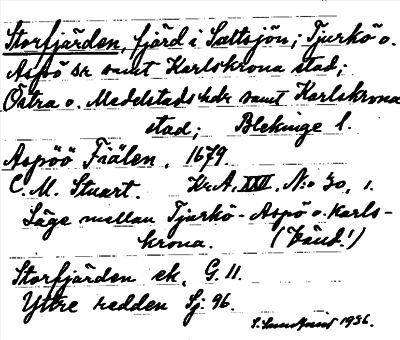 Storfjärden, fjärd i Saltsjön; Tjurkö o.
Aspö sr samt Karlskrona stad;
Östra o. Medelstads hdr samt Karlskrona
stad; Blekinge l.
Aspöö Fiälen, 1679.
C. M. Stuart. Kr.A. XXVI. N:o 30, 1.
Läge mellan Tjurkö - Aspö o. Karls-
krona. (Länd!)
Storfjärden ek. G. 11.
Yttre redden Sj. 96.
1936.